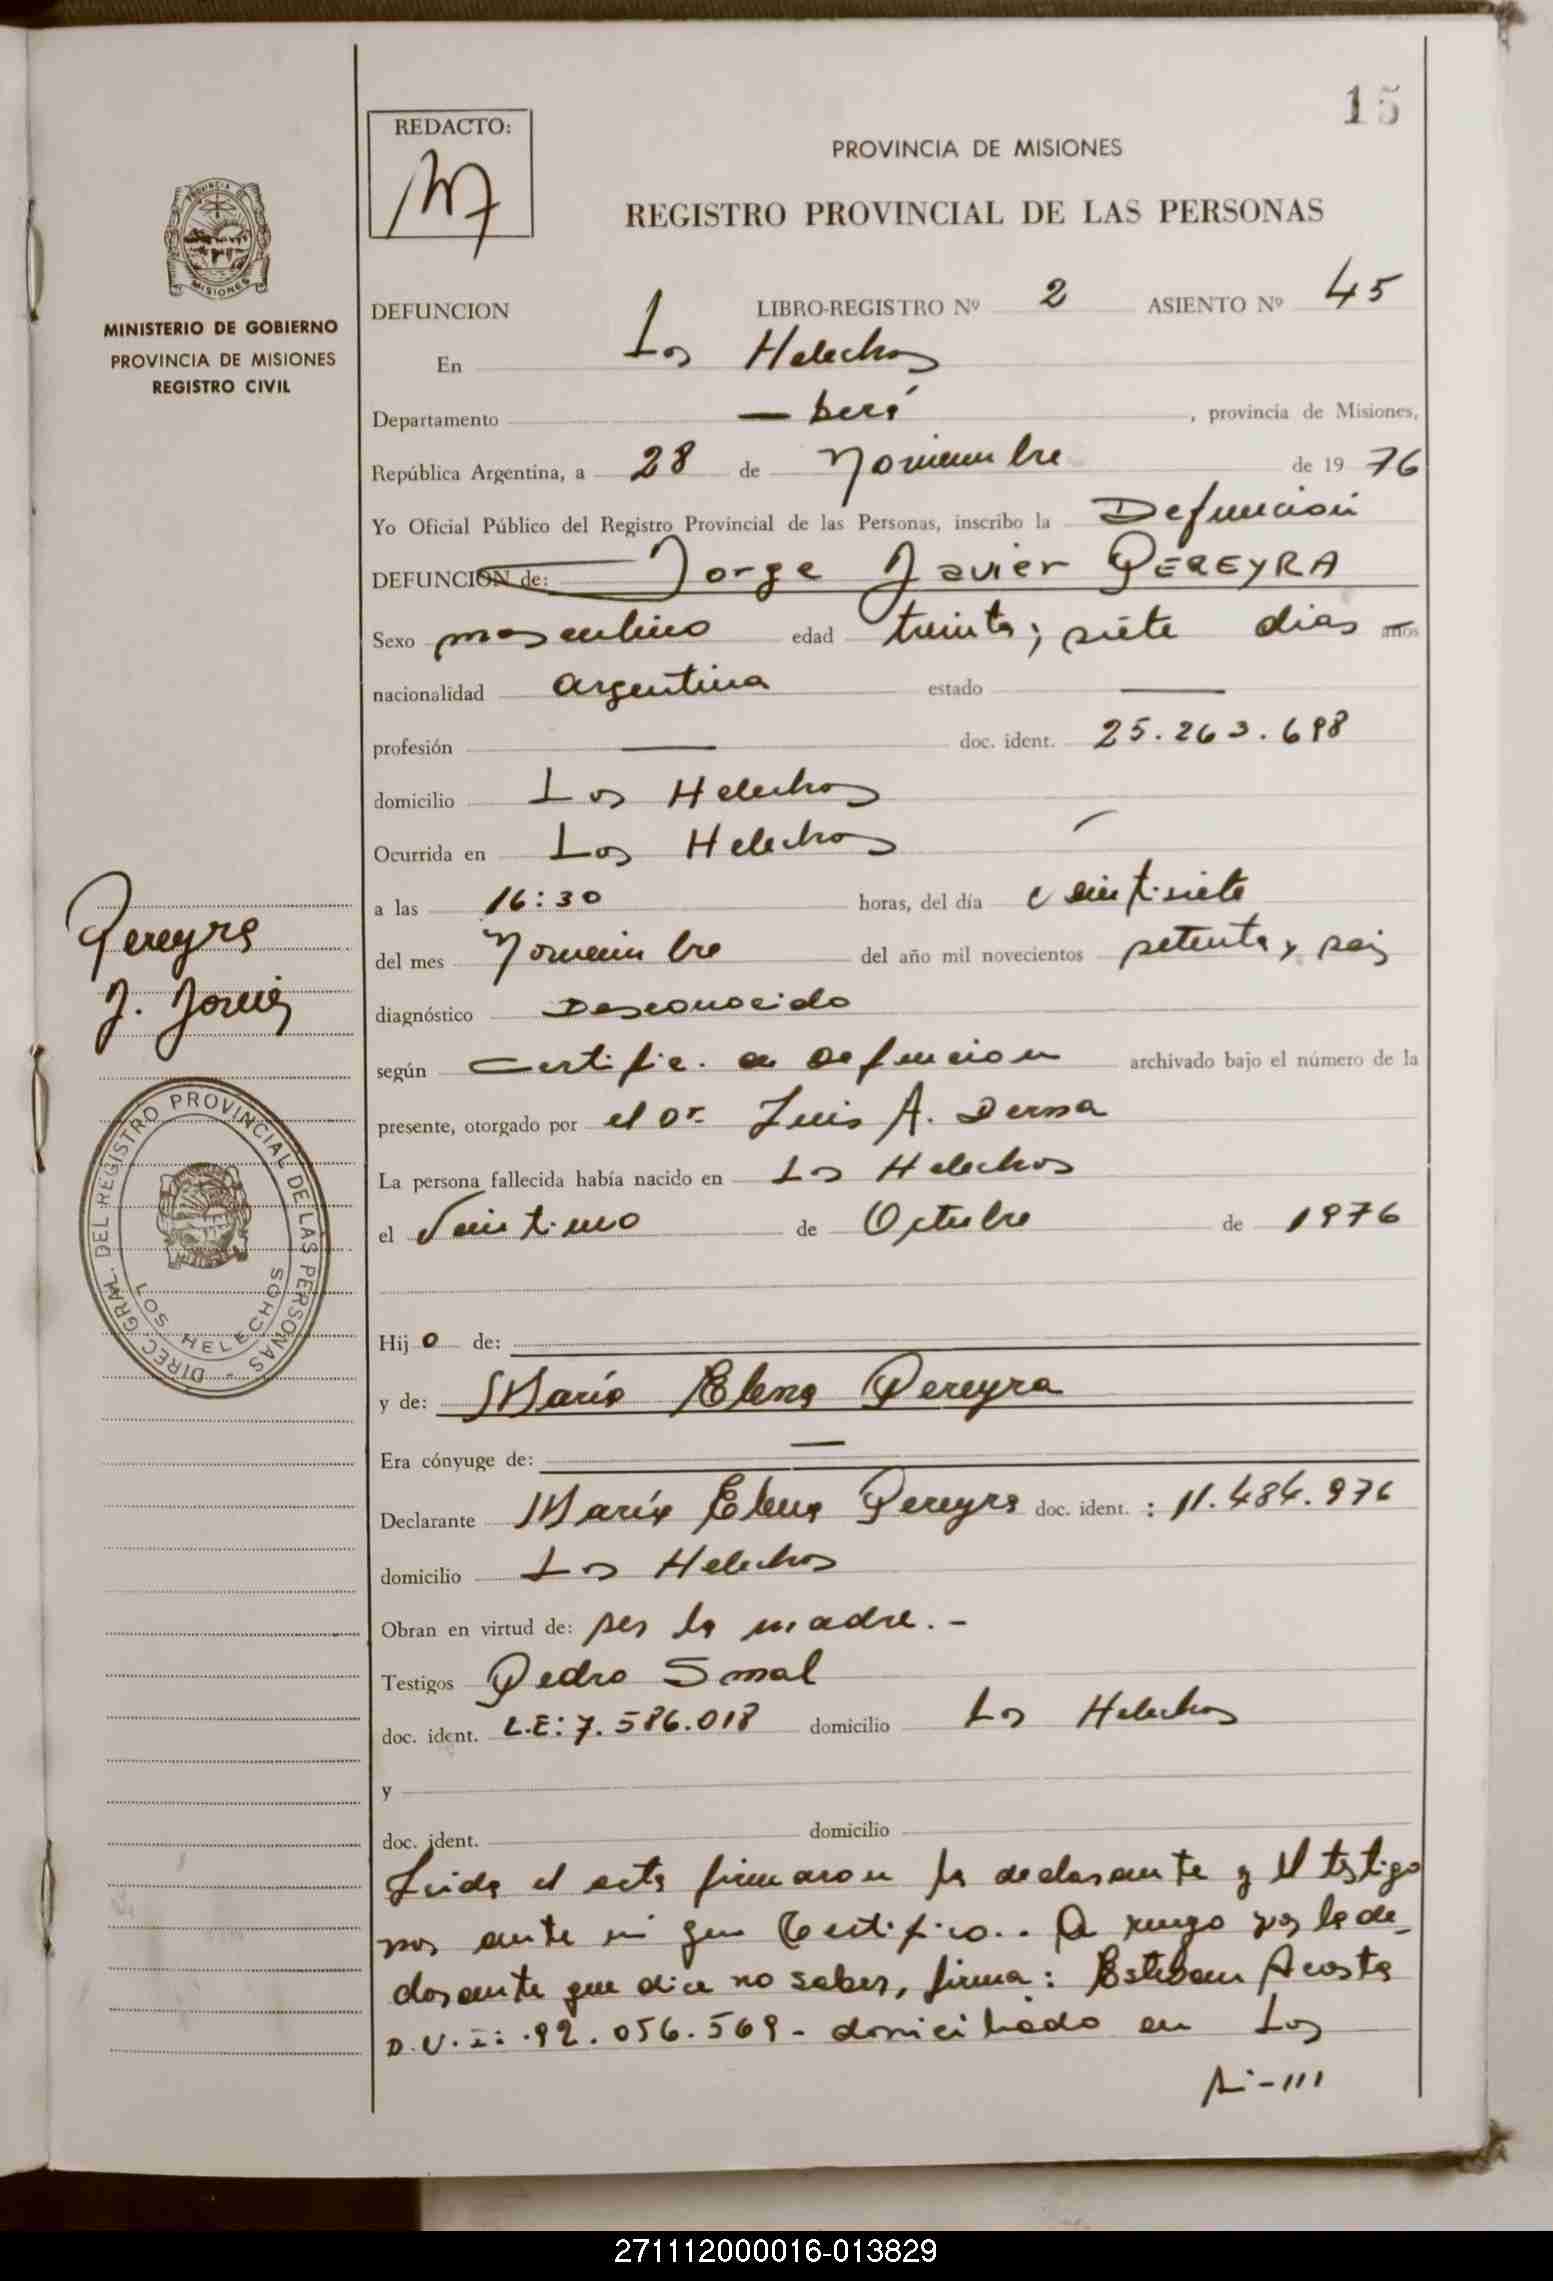 15
REDACTO:
PROVINCIA DE MISIONES
REGISTRO PROVINCIAL DE LAS PERSONAS
PROVINCIA DE
MISIONES
MINISTERIO DE GOBIERNO
PROVINCIA DE MISIONES
REGISTRO CIVIL
DEFUNCION LIBRO-REGISTRO Nº 2 ASIENTO Nº 45
En Los Helechos
Departamento — berá , provincia de Misiones,
República Argentina, a 28 de Noviembre de 19 76
Yo Oficial Público del Registro Provincial de las Personas, inscribo la Defunción
DEFUNCION de: Jorge Javier PEREYRA
Sexo masculino edad treinta y siete dias años
nacionalidad argentina estado —
profesión — doc. ident. 25.263.698
domicilio Los Helechos
Ocurrida en Los Helechos
a las 16:30 horas, del día veintisiete
del mes Noviembre del año mil novecientos setenta y seis
diagnóstico Desconocido
según Certific. de Defuncion archivado bajo el número de la
presente, otorgado por el Dr. Luis A. Derna
La persona fallecida había nacido en Los Helechos
el Veintiuno de Octubre de 1976
Hijo de:
y de: María Elena Pereyra
Era cónyuge de: —
Declarante María Elena Pereyra doc. ident. : 11.484.976
domicilio Los Helechos
Obran en virtud de: ser la madre.-
Testigos Pedro Smal
doc. ident. L.E: 7.586.018 domicilio Los Helechos
y
doc. ident. domicilio
Leida el acta firmaron la declarante y el testigo
por ante mi que Certifico.. A ruego por la de-
clarante que dice no saber, firma: Esteban Acosta
D.U.I: 92.056.569- domiciliado en Los
Pereyra
J. Javier
DIREC. GRAL. DEL REGISTRO PROVINCIAL DE LAS PERSONAS
LOS HELECHOS
271112000016-013829